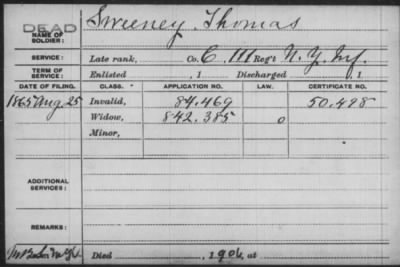 DEAD
NAME OF SOLDIER: Sweeney, Thomas
SERVICE: Late rank, Co. C, 111 Reg't N.Y. Inf.
TERM OF SERVICE: Enlisted , 1 Discharged , 1
DATE OF FILING. CLASS. APPLICATION NO. LAW. CERTIFICATE NO.
1865 Aug. 25 Invalid, 84.469 50.498
Widow, 842.385 0
Minor,
ADDITIONAL SERVICES:
REMARKS:
Died 1906, at